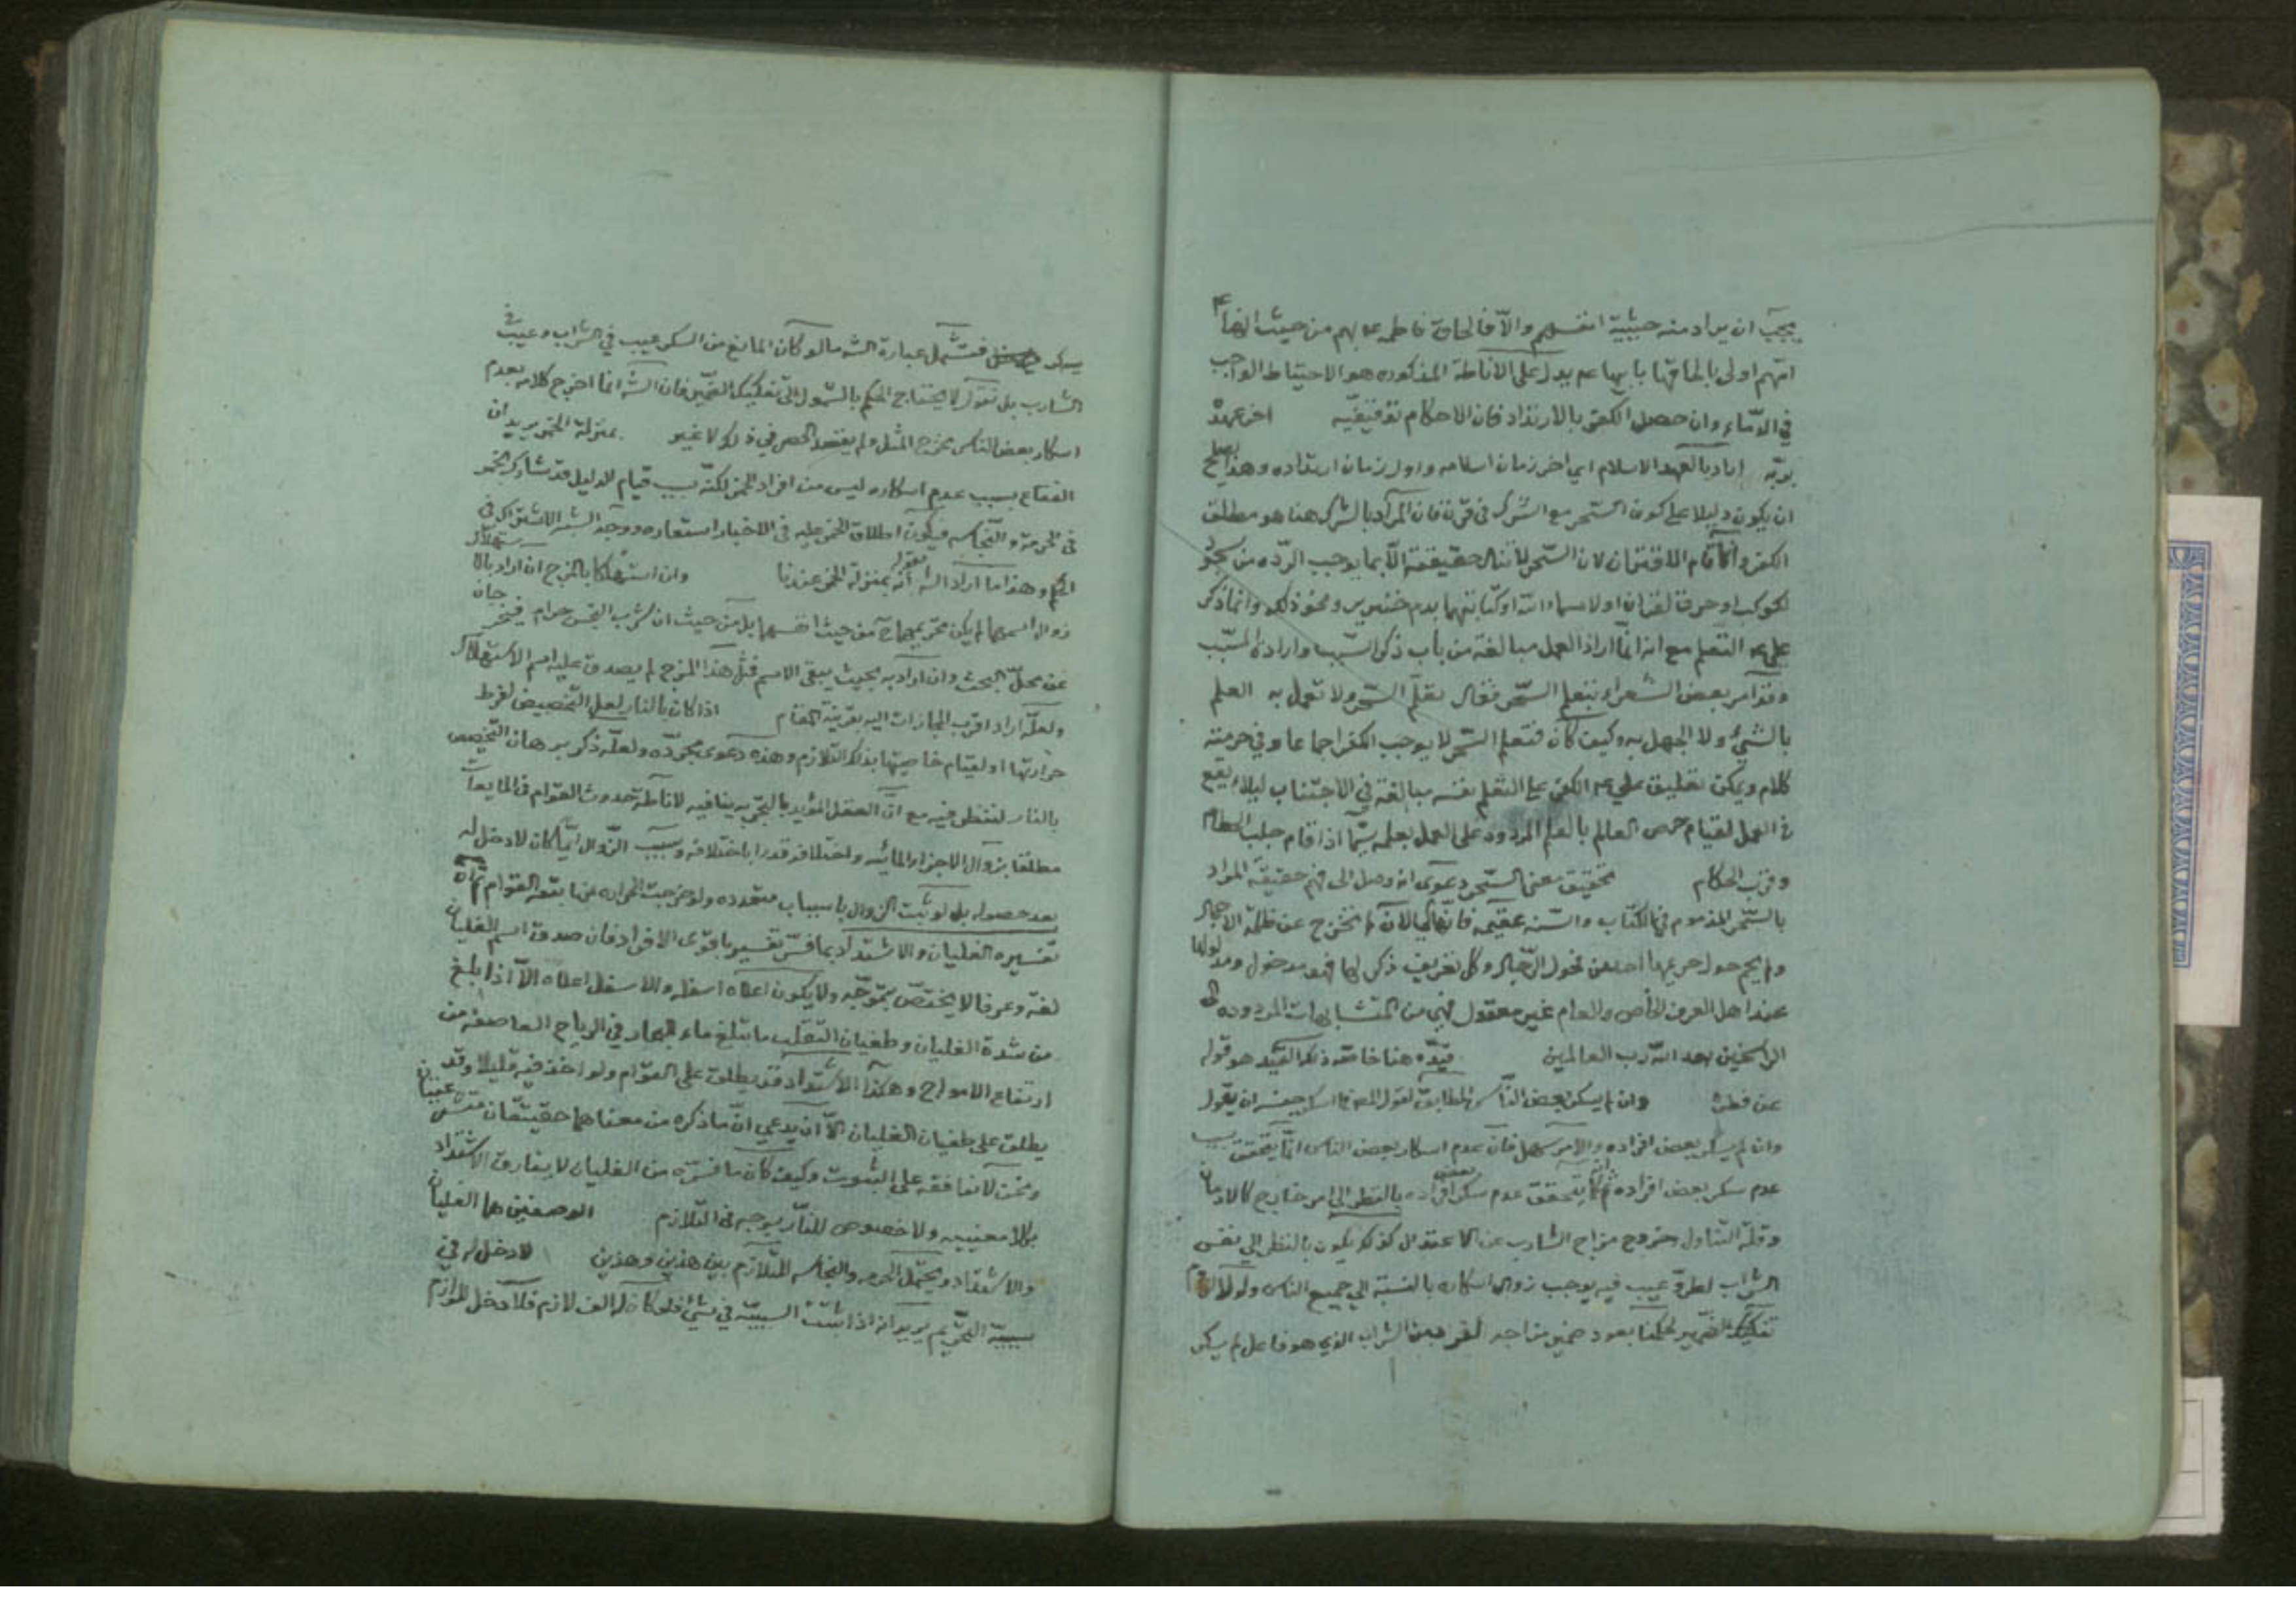 يجب ان يراد منه حيثية انفسهم والا فالحاق فاطمه عه بهم من حيث انها
انهم اولى بالحاقها بابيها عم يدل على الاناطة المذكوره هو الاحتياط الواجب
في الدماء وان حصل الكفر بالارتداد فان الاحكام توقيفيه اخر عهد
بوبه اراد بالعهد الاسلام اي اخر زمان اسلامه واول زمان ارتداده وهذا يصلح
ان يكون دليلا على كون السحر مع الشرك في قرن فان المراد بالشرك هنا هو مطلق
الكفر و الاقتران لان السحر لا حقيقة الا بما يوجب الرده من
لكوكب او حرق لقران او لاسماء الله او كتابتهما بدم خنزير ونحو ذلك وانما ذكر
على عه التعلم مع انه انما اراد العمل مبالغة من باب ذكر السبب وارادة المسبب
وقد امر بعض الشعراء بتعلم السحر فقال تعلم السحر ولا تعمل به العلم
بالشيء ولا الجهل به وكيف كان فتعلم السحر لا يوجب الكفر اجماعا وفي حرمته
كلام ويمكن تعليق على عه الكفر على التعلم نفسه مبالغة في الاجتناب ليلا يقع
في العمل لقيام حرص العالم بالعلم المردود على العمل بعلمه سيما اذا قام جلب الحطام
وقرب الحكام تحقيق معنى السحر دعوى انه وصل الى فهم حقيقة المراد
بالسحر المذموم في الكتاب والسنه عقيمه فانها الى الان لم تخرج عن ظلمة الاجمال
ولم يحم حول حريمها احد من فحول الرجال وكل تعريف ذكر لها فهو مدخول
عند اهل العرف الخاص والعام غير معقول فهي من المتشابهات المردوده الى
الراسخين بعد الله رب العالمين قيده هنا خاصة ذلك القيد هو قوله
عن فطرة وان لم يسكر بعض الناس المطابق لقول المص ان يقول
وان لم يسكر بعض افراده والامر سهل فان عدم اسكار بعض الناس انما يتحقق بسبب
عدم سكر بعض افراده ثم كما يتحقق عدم سكر بعض افراده بالنظر الى امر خارج كالادمان
وقلة التناول وخروج مزاج الشارب عن الاعتدال كذلك يكون بالنظر الى نفس
الشراب لطرو عيب فيه يوجب زوال اسكاره بالنسبة الى جميع الناس ولولا
تفكيك الضمير لحكمنا بعود ضمير مزاجه لفرد من الشراب الذي هو فاعل لم يسكر
يسكر فتشمل عبارة الشه ما لو كان المانع من السكر عيب في الشراب وعيب في
الشارب بل نقول لا يحتاج الحكم بالشمول الى تفكيك الضمير فان الشه انما اخرج كلامه بعدم
اسكار بعض الناس مخرج المثل ولم يقصد الحصر في ذلك لا غير بمنزلة الخمر يريد ان
الفقاع بسبب عدم اسكاره ليس من افراد الخمر لكنه بسبب قيام الدليل قد شارك الخمر
في الحرمة والنجاسه فيكون اطلاق الخمر عليه في الاخبار استعاره ووجه الشبه الاشتراك في
الحكم وهذا ما اراد الشه بقوله انه بمنزلة الخمر عندنا وان استهلكا بالمزج ان اراد بالاستهلاك
زوال اسمهما لم يكن محرميهما ح من حيث انفسهما بل من حيث ان شرب النجس حرام فيخرجان
عن محل البحث وان اراد به بحيث يبقى الاسم فمثل هذا المزج لم يصدق عليه اسم الاستهلاك
ولعله اراد اقرب المجازات اليه بقرينة المقام اذا كان بالنار لعل التخصيص لفرط
حرارتها او لقيام خاصيتها بذلك التلازم وهذه دعوى مجرده ولعله ذكر برهان التخصيص
بالنار لننظر فيه مع ان العقل المؤيد بالتجربه ينافيه لاناطة حدوث القوام في المايعات
مطلقا بزوال الاجزاء المائيه واختلافه قدرا باختلافه وسبب الزوال ايا كان لا دخل له
بعد حصوله بل لو ثبت الزوال باسباب متعدده ولو خرجت الحراره عنها بقوه القوام
تفسيره الغليان والاشتداد بما فسر تفسير باقوى الافراد فان صدق اسم الغليان
لغة وعرفا لا يختص بتموجه ولا يكون اعلاه اسفله والاسفل اعلاه الا اذا بلغ
من شدة الغليان وطغيان التقلب ما تبلغ ماء البحار في الرياح العاصفه من
ارتفاع الامواج وهكذا الاشتداد قد يطلق على القوام ولو اخذ فيه قليلا وقد
يطلق على طغيان الغليان الا ان يدعي ان ما ذكره من معناهما حقيقتان
ونحن لا نوافقه على الثبوت وكيف كان ما فسره من الغليان لا يفارق الاشتداد
بكلا معنييه ولا خصوص للنار يوجبه في التلازم الوصفين هما الغليان
والاشتداد ويحتمل الحرمه والنجاسه للتلازم بين هذين وهذين لا دخل له في
سببية التحريم يريد انه اذا ثبتت السببيه في شيء فلو كان له الف لازم فلا دخل للوازم